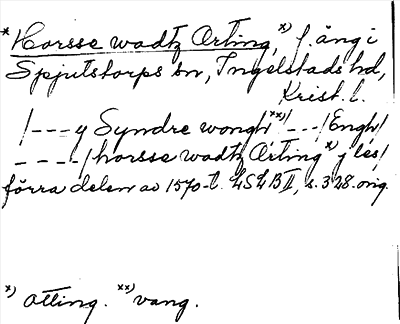 * Horsse wadtz Orting, *) f. äng i
Spjutstorps sn, Ingelstads hd,
Krist. l.
/---y Syndre wongh **)/---/Engh/
----/horsse wadtz Orting *) j lés/
förra delen av 1570-t. LSLB II, s. 328. orig.
*) Otting. **) vang.